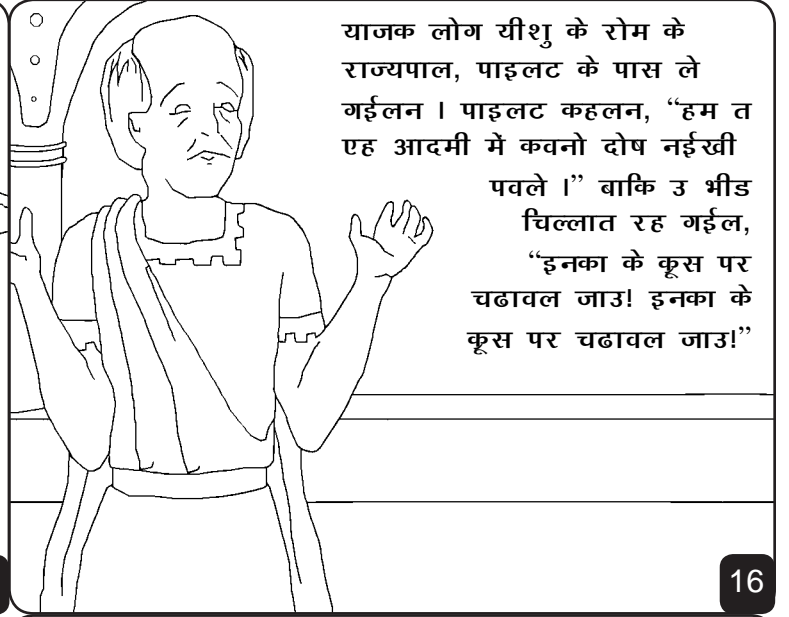 याजक लोग यीशु के रोम के
राज्यपाल, पाइलट के पास ले
गईलन । पाइलट कहलन, “हम त
एह आदमी में कवनो दोष नईखी
पवले ।” बाकि उ भीड
चिल्लात रह गईल,
“इनका के कूस पर
चढावल जाउ! इनका के
कूस पर चढावल जाउ!”
16